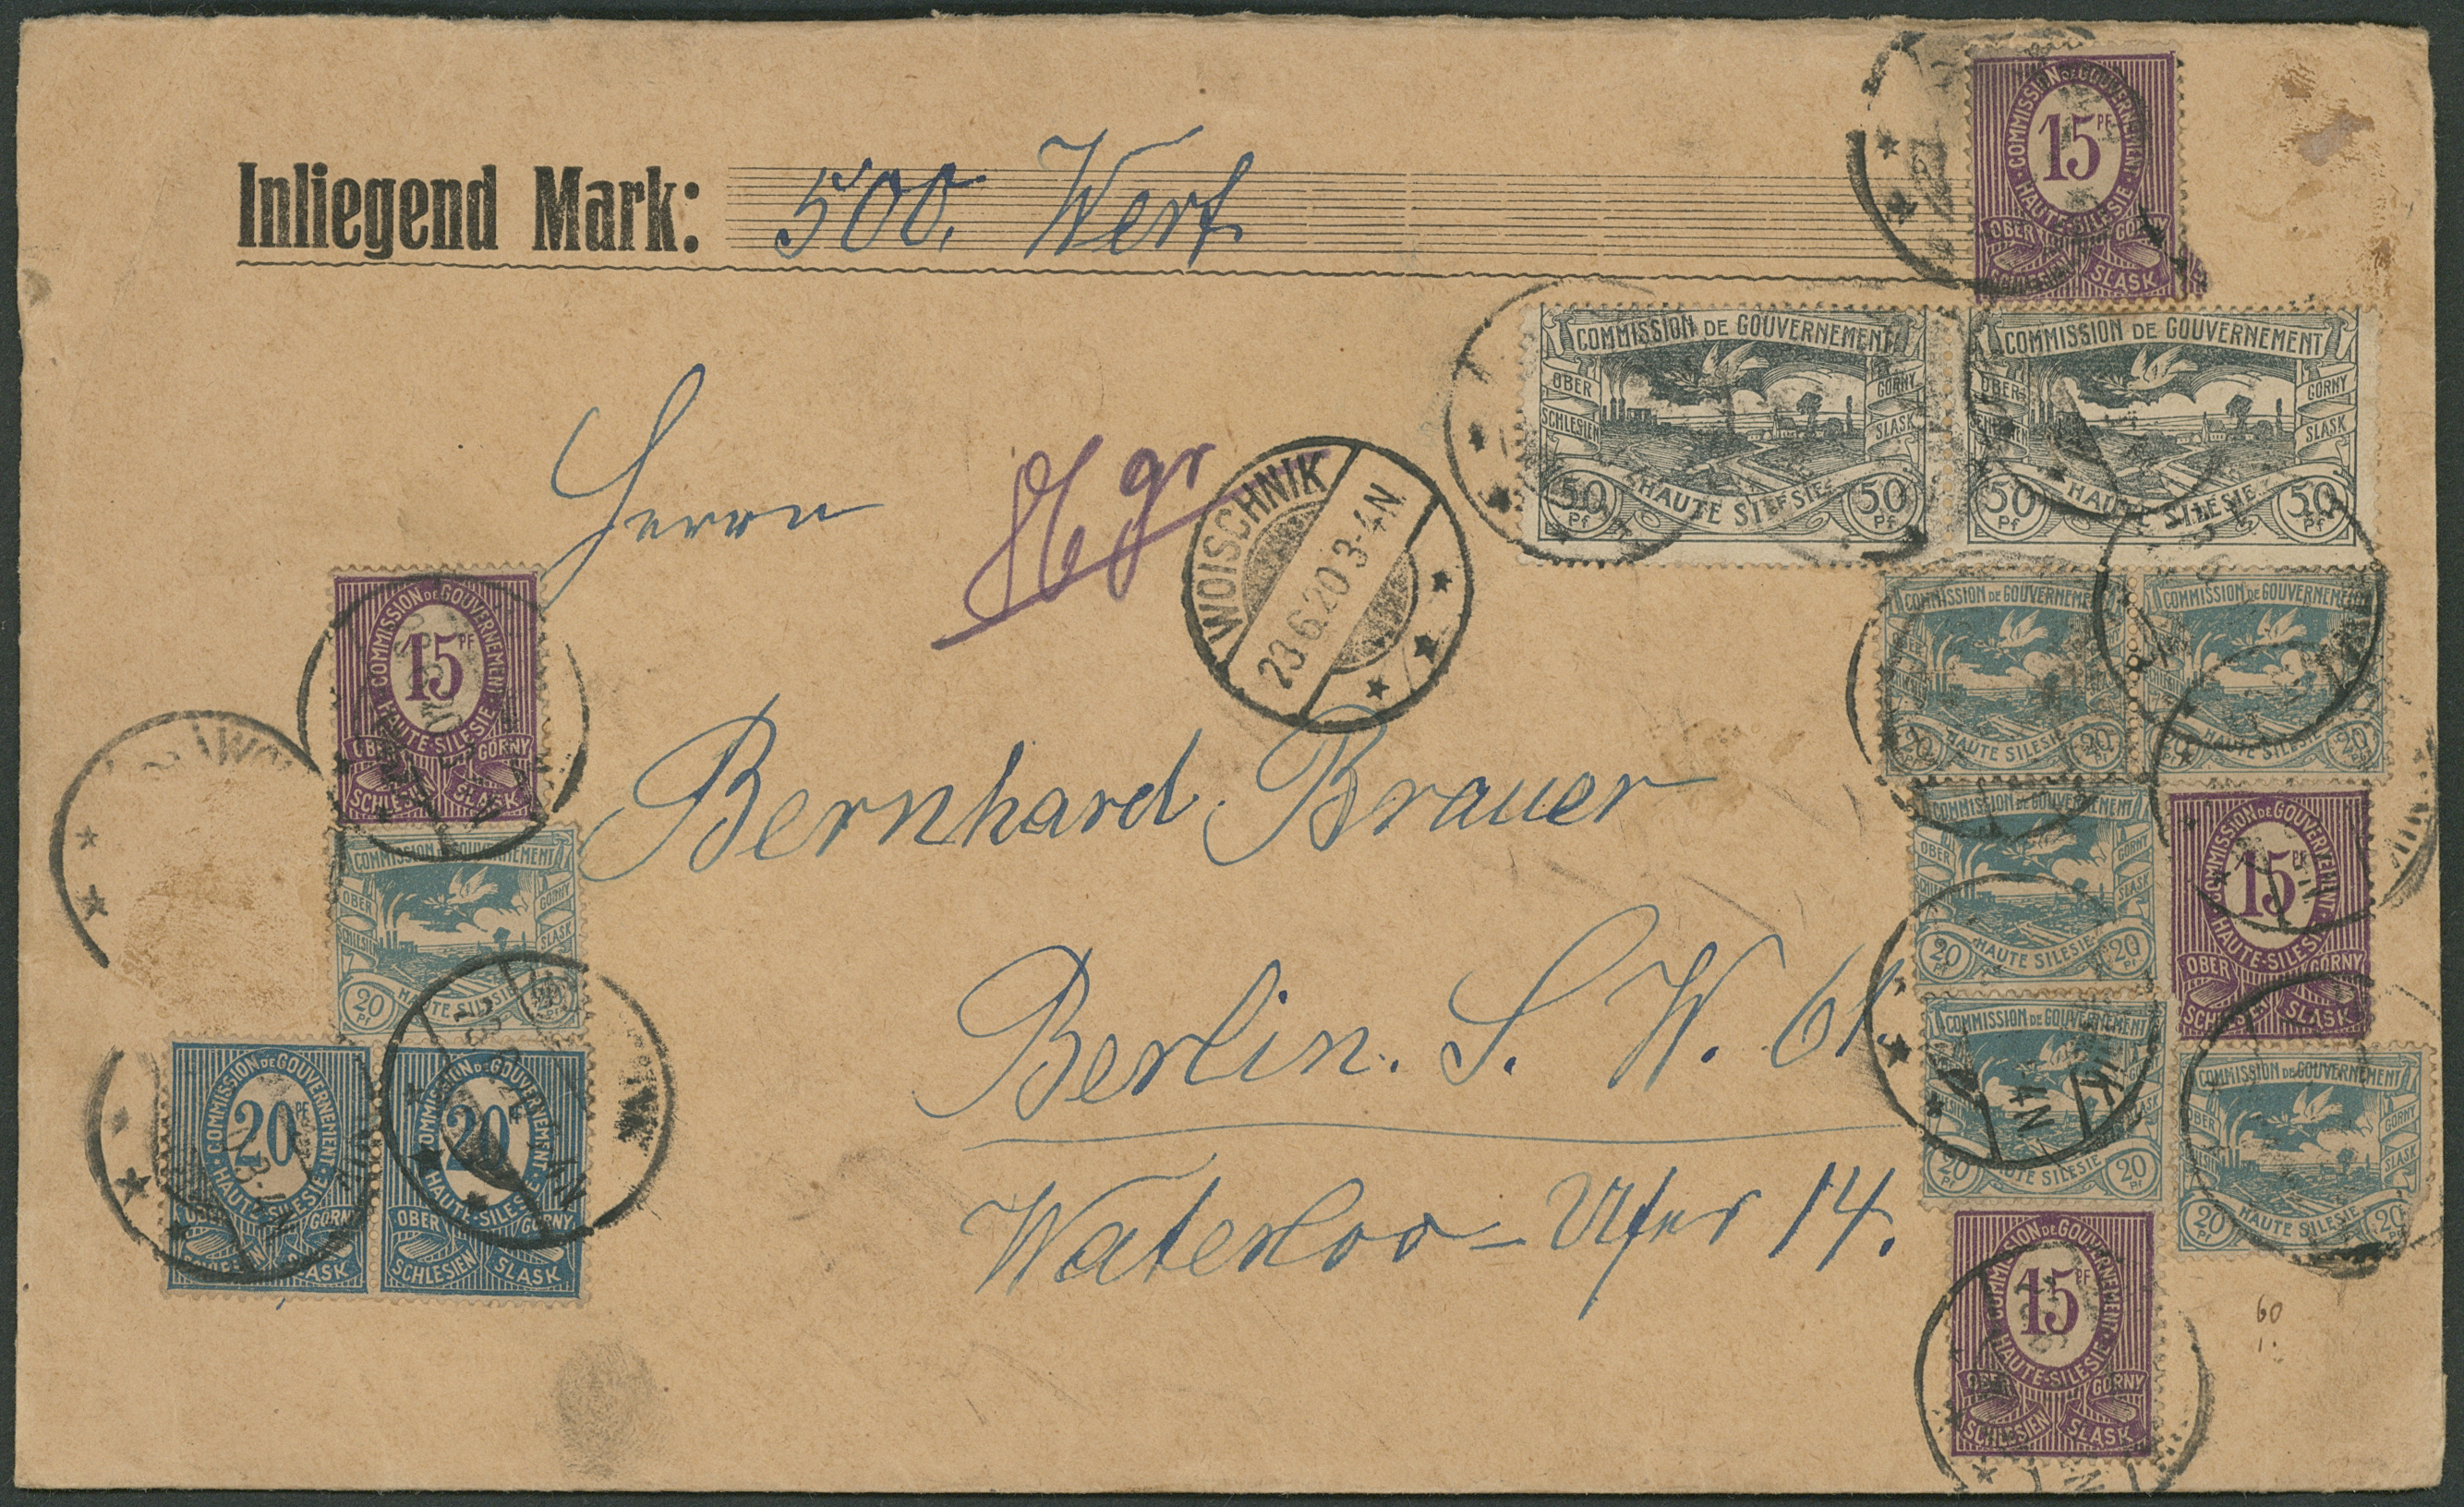 Inliegend Mark: 500. Wert
Herrn
gr
Bernhard Brauer
Berlin. S. W. 61.
Waterloo-Ufer 14.
WOISCHNIK
23.6.20 3-4N
COMMISSION DE GOUVERNEMENT
15 PF
HAUTE-SILESIE
OBER GORNY
SLASK
COMMISSION DE GOUVERNEMENT
OBER SCHLESIEN
GORNY SLASK
50 Pf HAUTE SILESIE 50 Pf
COMMISSION DE GOUVERNEMENT
OBER SCHLESIEN
GORNY SLASK
50 Pf HAUTE SILESIE 50 Pf
COMMISSION DE GOUVERNEMENT
20 HAUTE SILESIE 20
COMMISSION DE GOUVERNEMENT
HAUTE SILESIE 20
COMMISSION DE GOUVERNEMENT
OBER
GORNY SLASK
20 Pf HAUTE SILESIE 20 Pf
COMMISSION DE GOUVERNEMENT
15 PF
HAUTE-SILESIE
OBER GORNY
SCHLESIEN SLASK
COMMISSION DE GOUVERNEMENT
20 Pf HAUTE SILESIE 20 Pf
4N
COMMISSION DE GOUVERNEMENT
OBER
GORNY SLASK
20 Pf HAUTE SILESIE 20
COMMISSION DE GOUVERNEMENT
15 PF
HAUTE-SILESIE
OBER GORNY
SCHLESIEN SLASK
60
1.
COMMISSION DE GOUVERNEMENT
15 PF
HAUTE-SILESIE
OBER GORNY
SCHLESIEN SLASK
COMMISSION DE GOUVERNEMENT
OBER SCHLESIEN
GORNY SLASK
20 Pf HAUTE SILESIE 20
COMMISSION DE GOUVERNEMENT
20 PF
HAUTE-SILESIE
OBER GORNY
SCHLESIEN SLASK
COMMISSION DE GOUVERNEMENT
20
HAUTE-SILESIE
OBER GORNY
SCHLESIEN SLASK